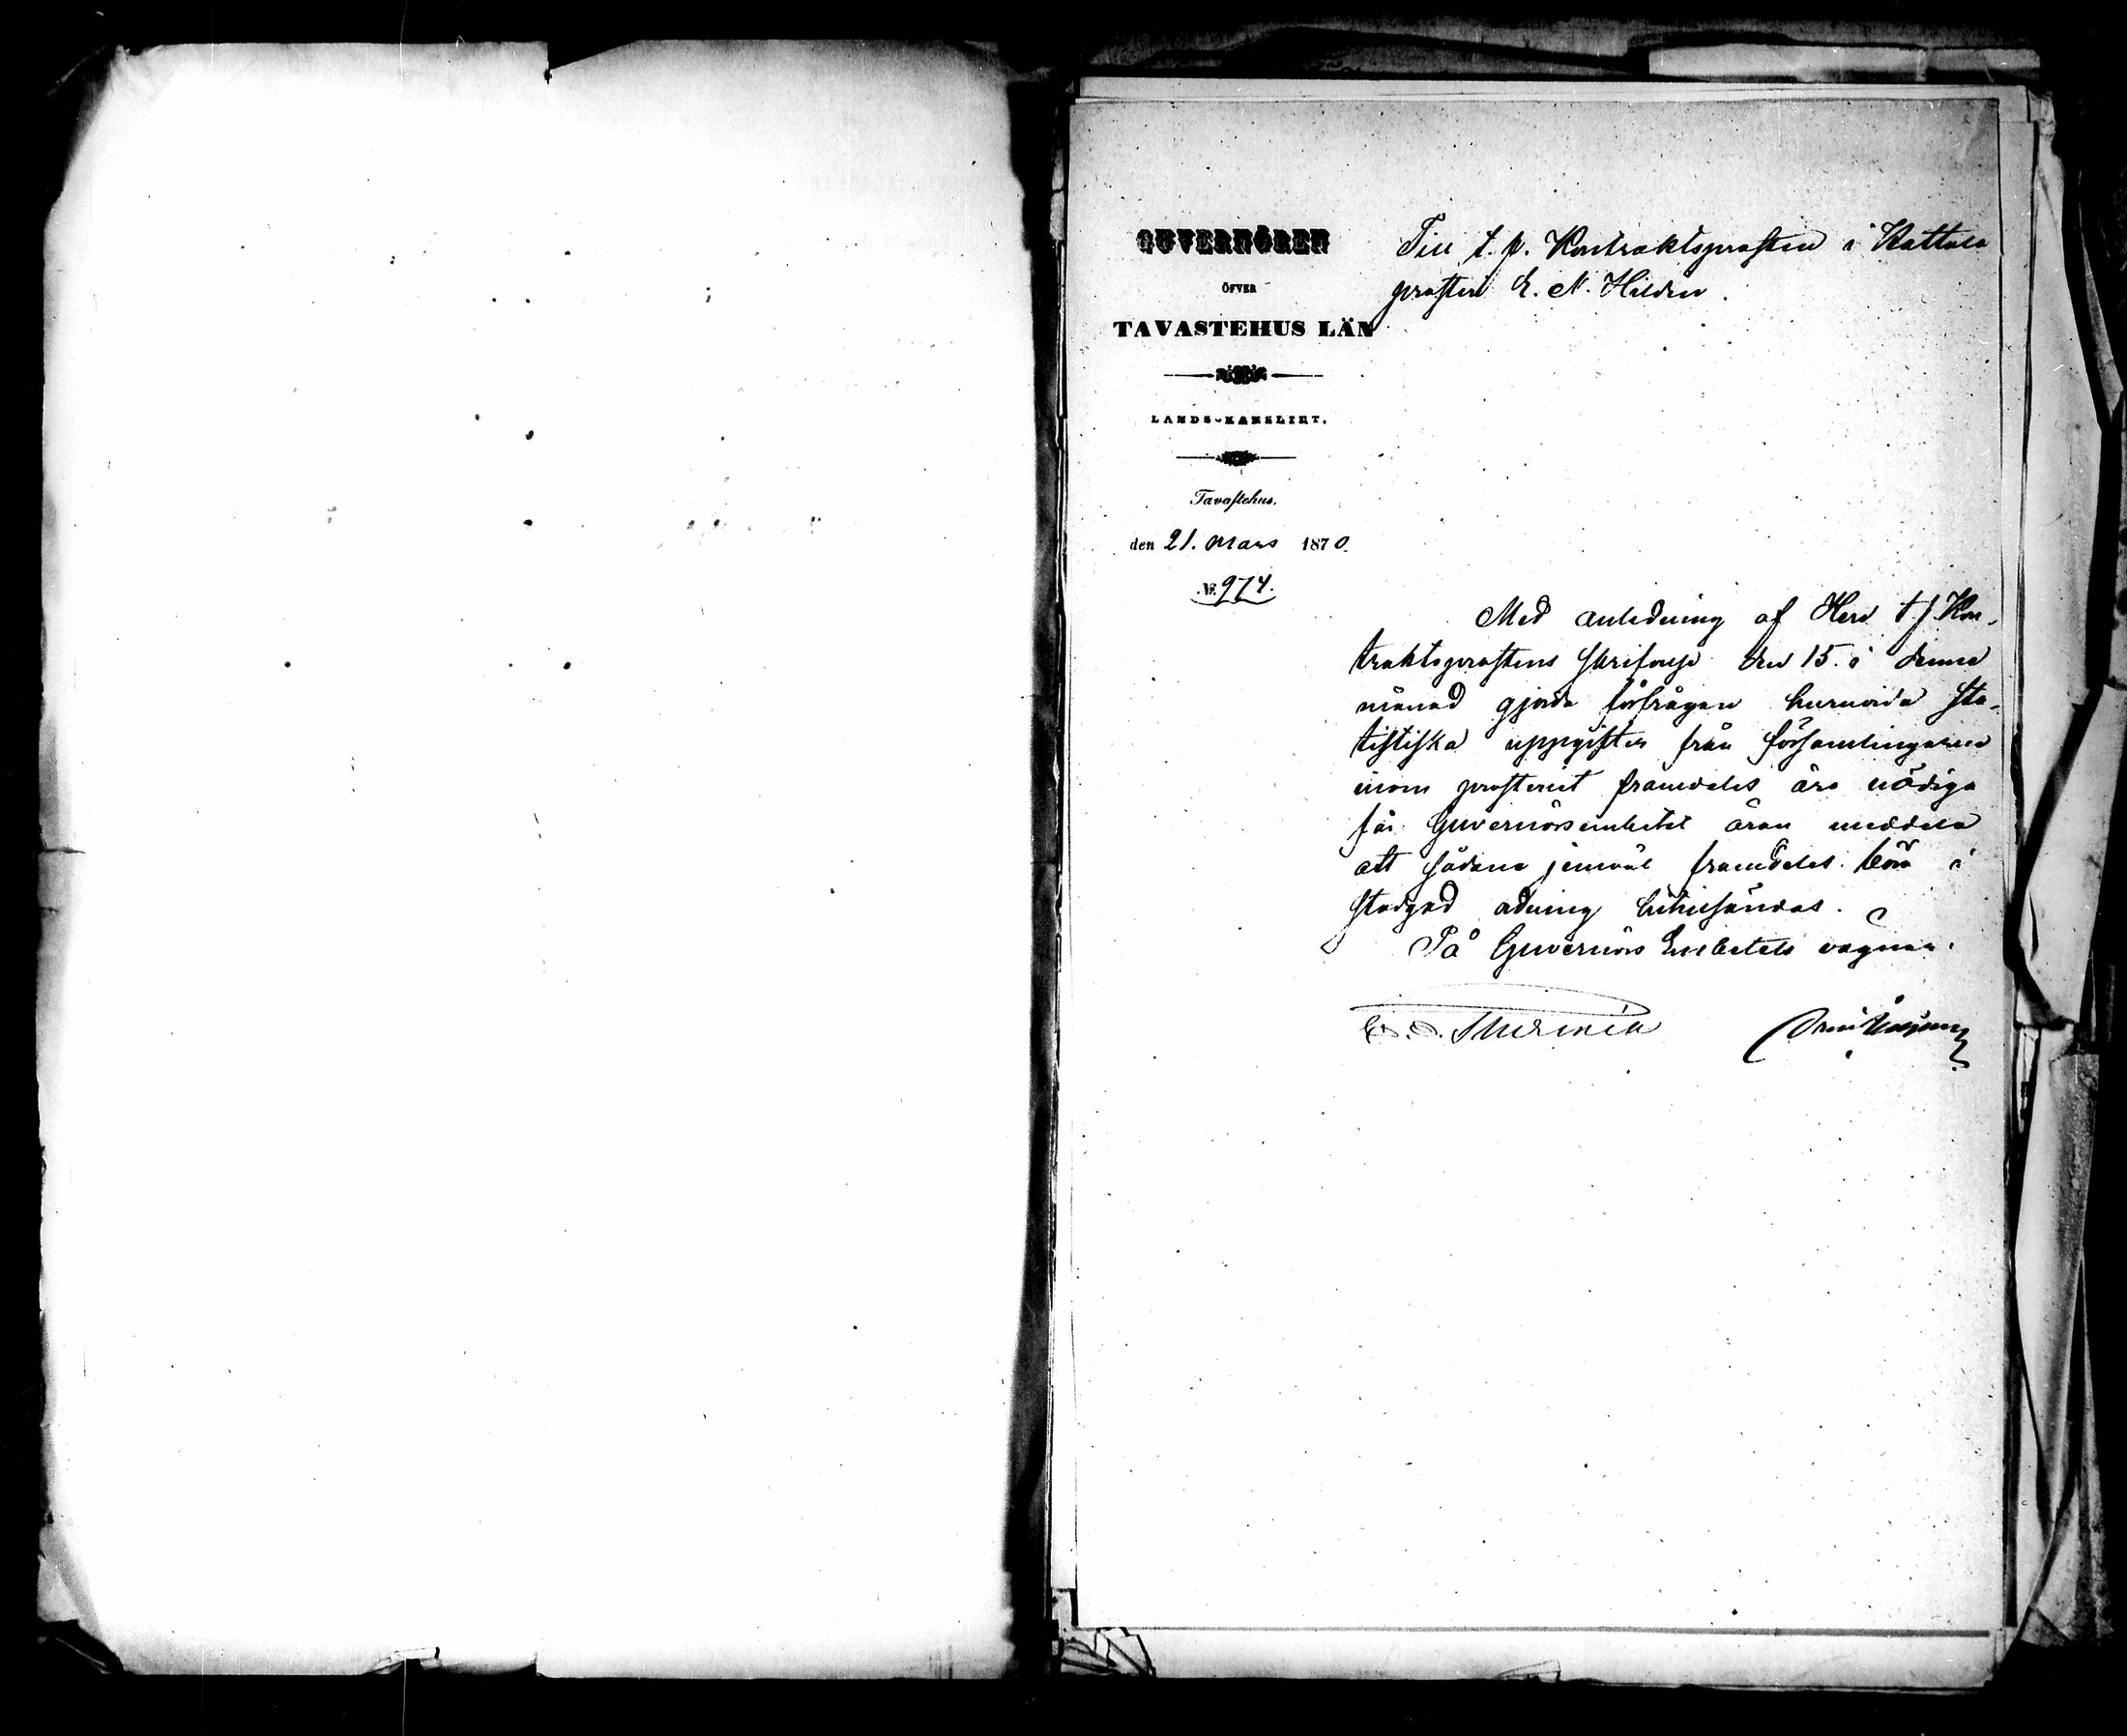 GUVERNÖREN
ÖFVER
TAVASTEHUS LÄN
LANDS-KANSLIET.
Tavastehus.
den 21. Mars 1870.
№ 974.
Till t. f. Kontraktsprosten i Hattula
prosteri E. N. Hildén.
Med anledning af Herr t. f. Kon-
traktsprostens skriftlige den 15. i denne
månad gjorda förfrågan huruvida sta-
tistiska uppgifter från församlingarne
inom prosteriet framdeles äro nödiga
får Guvernörsembetet äran meddela
att sådane jemväl framdeles böra i
stadgad ordning hitinsändas.
På Guvernörs Embetets vägnar.
Thermén